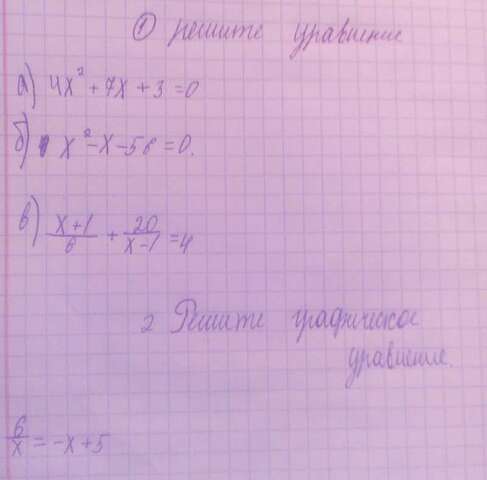 ① решите уравнение
а) 4x² + 7x + 3 = 0
б) x² - x - 56 = 0.
в) \frac{x+1}{6} + \frac{20}{x-1} = 4
2 Решите графическое
уравнение.
\frac{6}{x} = -x + 5